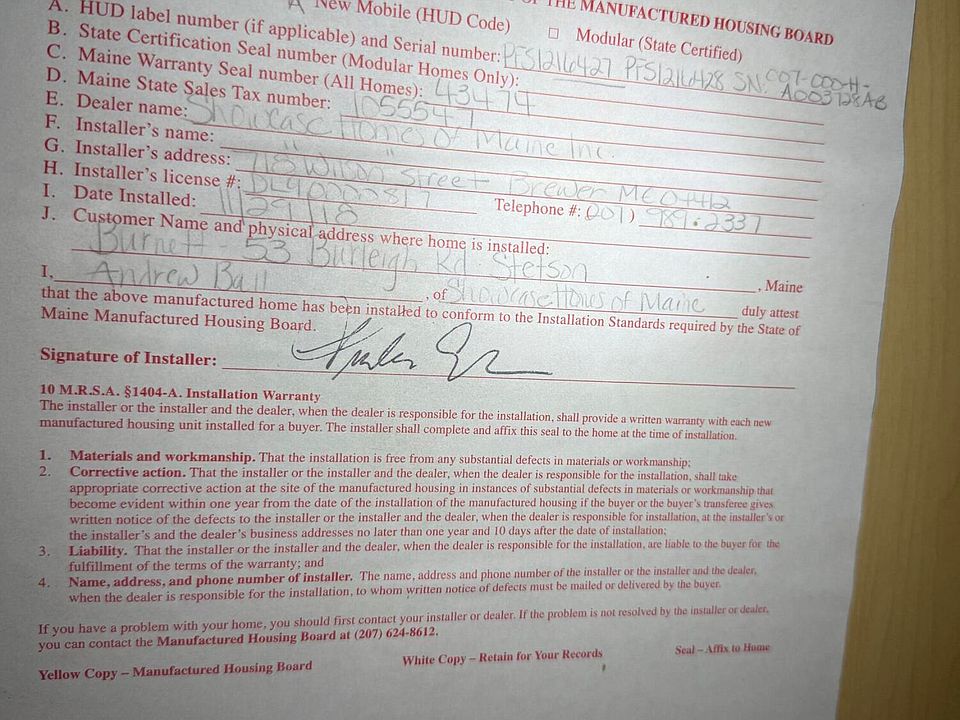 OF THE MANUFACTURED HOUSING BOARD
New Mobile (HUD Code) □ Modular (State Certified)
A. HUD label number (if applicable) and Serial number: PFS1216427 PFS1216428 SN: C07-000-H-A003728AB
B. State Certification Seal number (Modular Homes Only):
C. Maine Warranty Seal number (All Homes): 43474
D. Maine State Sales Tax number: 1055547
E. Dealer name: Showcase Homes of Maine Inc.
F. Installer's name: " "
G. Installer's address: Wilson Street Brewer ME 04412
H. Installer's license #: Telephone #: (207) 989-2337
I. Date Installed: 11/29/18
J. Customer Name and physical address where home is installed:
Burnett - 53 Burleigh Rd Stetson, Maine
I, Andrew Ball, of Showcase Homes of Maine duly attest
that the above manufactured home has been installed to conform to the Installation Standards required by the State of
Maine Manufactured Housing Board.
Signature of Installer:
10 M.R.S.A. §1404-A. Installation Warranty
The installer or the installer and the dealer, when the dealer is responsible for the installation, shall provide a written warranty with each new
manufactured housing unit installed for a buyer. The installer shall complete and affix this seal to the home at the time of installation.
1. Materials and workmanship. That the installation is free from any substantial defects in materials or workmanship;
2. Corrective action. That the installer or the installer and the dealer, when the dealer is responsible for the installation, shall take
appropriate corrective action at the site of the manufactured housing in instances of substantial defects in materials or workmanship that
become evident within one year from the date of the installation of the manufactured housing if the buyer or the buyer's transferee gives
written notice of the defects to the installer or the installer and the dealer, when the dealer is responsible for installation, at the installer's or
the installer's and the dealer's business addresses no later than one year and 10 days after the date of installation;
3. Liability. That the installer or the installer and the dealer, when the dealer is responsible for the installation, are liable to the buyer for the
fulfillment of the terms of the warranty; and
4. Name, address, and phone number of installer. The name, address and phone number of the installer or the installer and the dealer,
when the dealer is responsible for the installation, to whom written notice of defects must be mailed or delivered by the buyer.
If you have a problem with your home, you should first contact your installer or dealer. If the problem is not resolved by the installer or dealer,
you can contact the Manufactured Housing Board at (207) 624-8612.
Yellow Copy – Manufactured Housing Board White Copy – Retain for Your Records Seal – Affix to Home